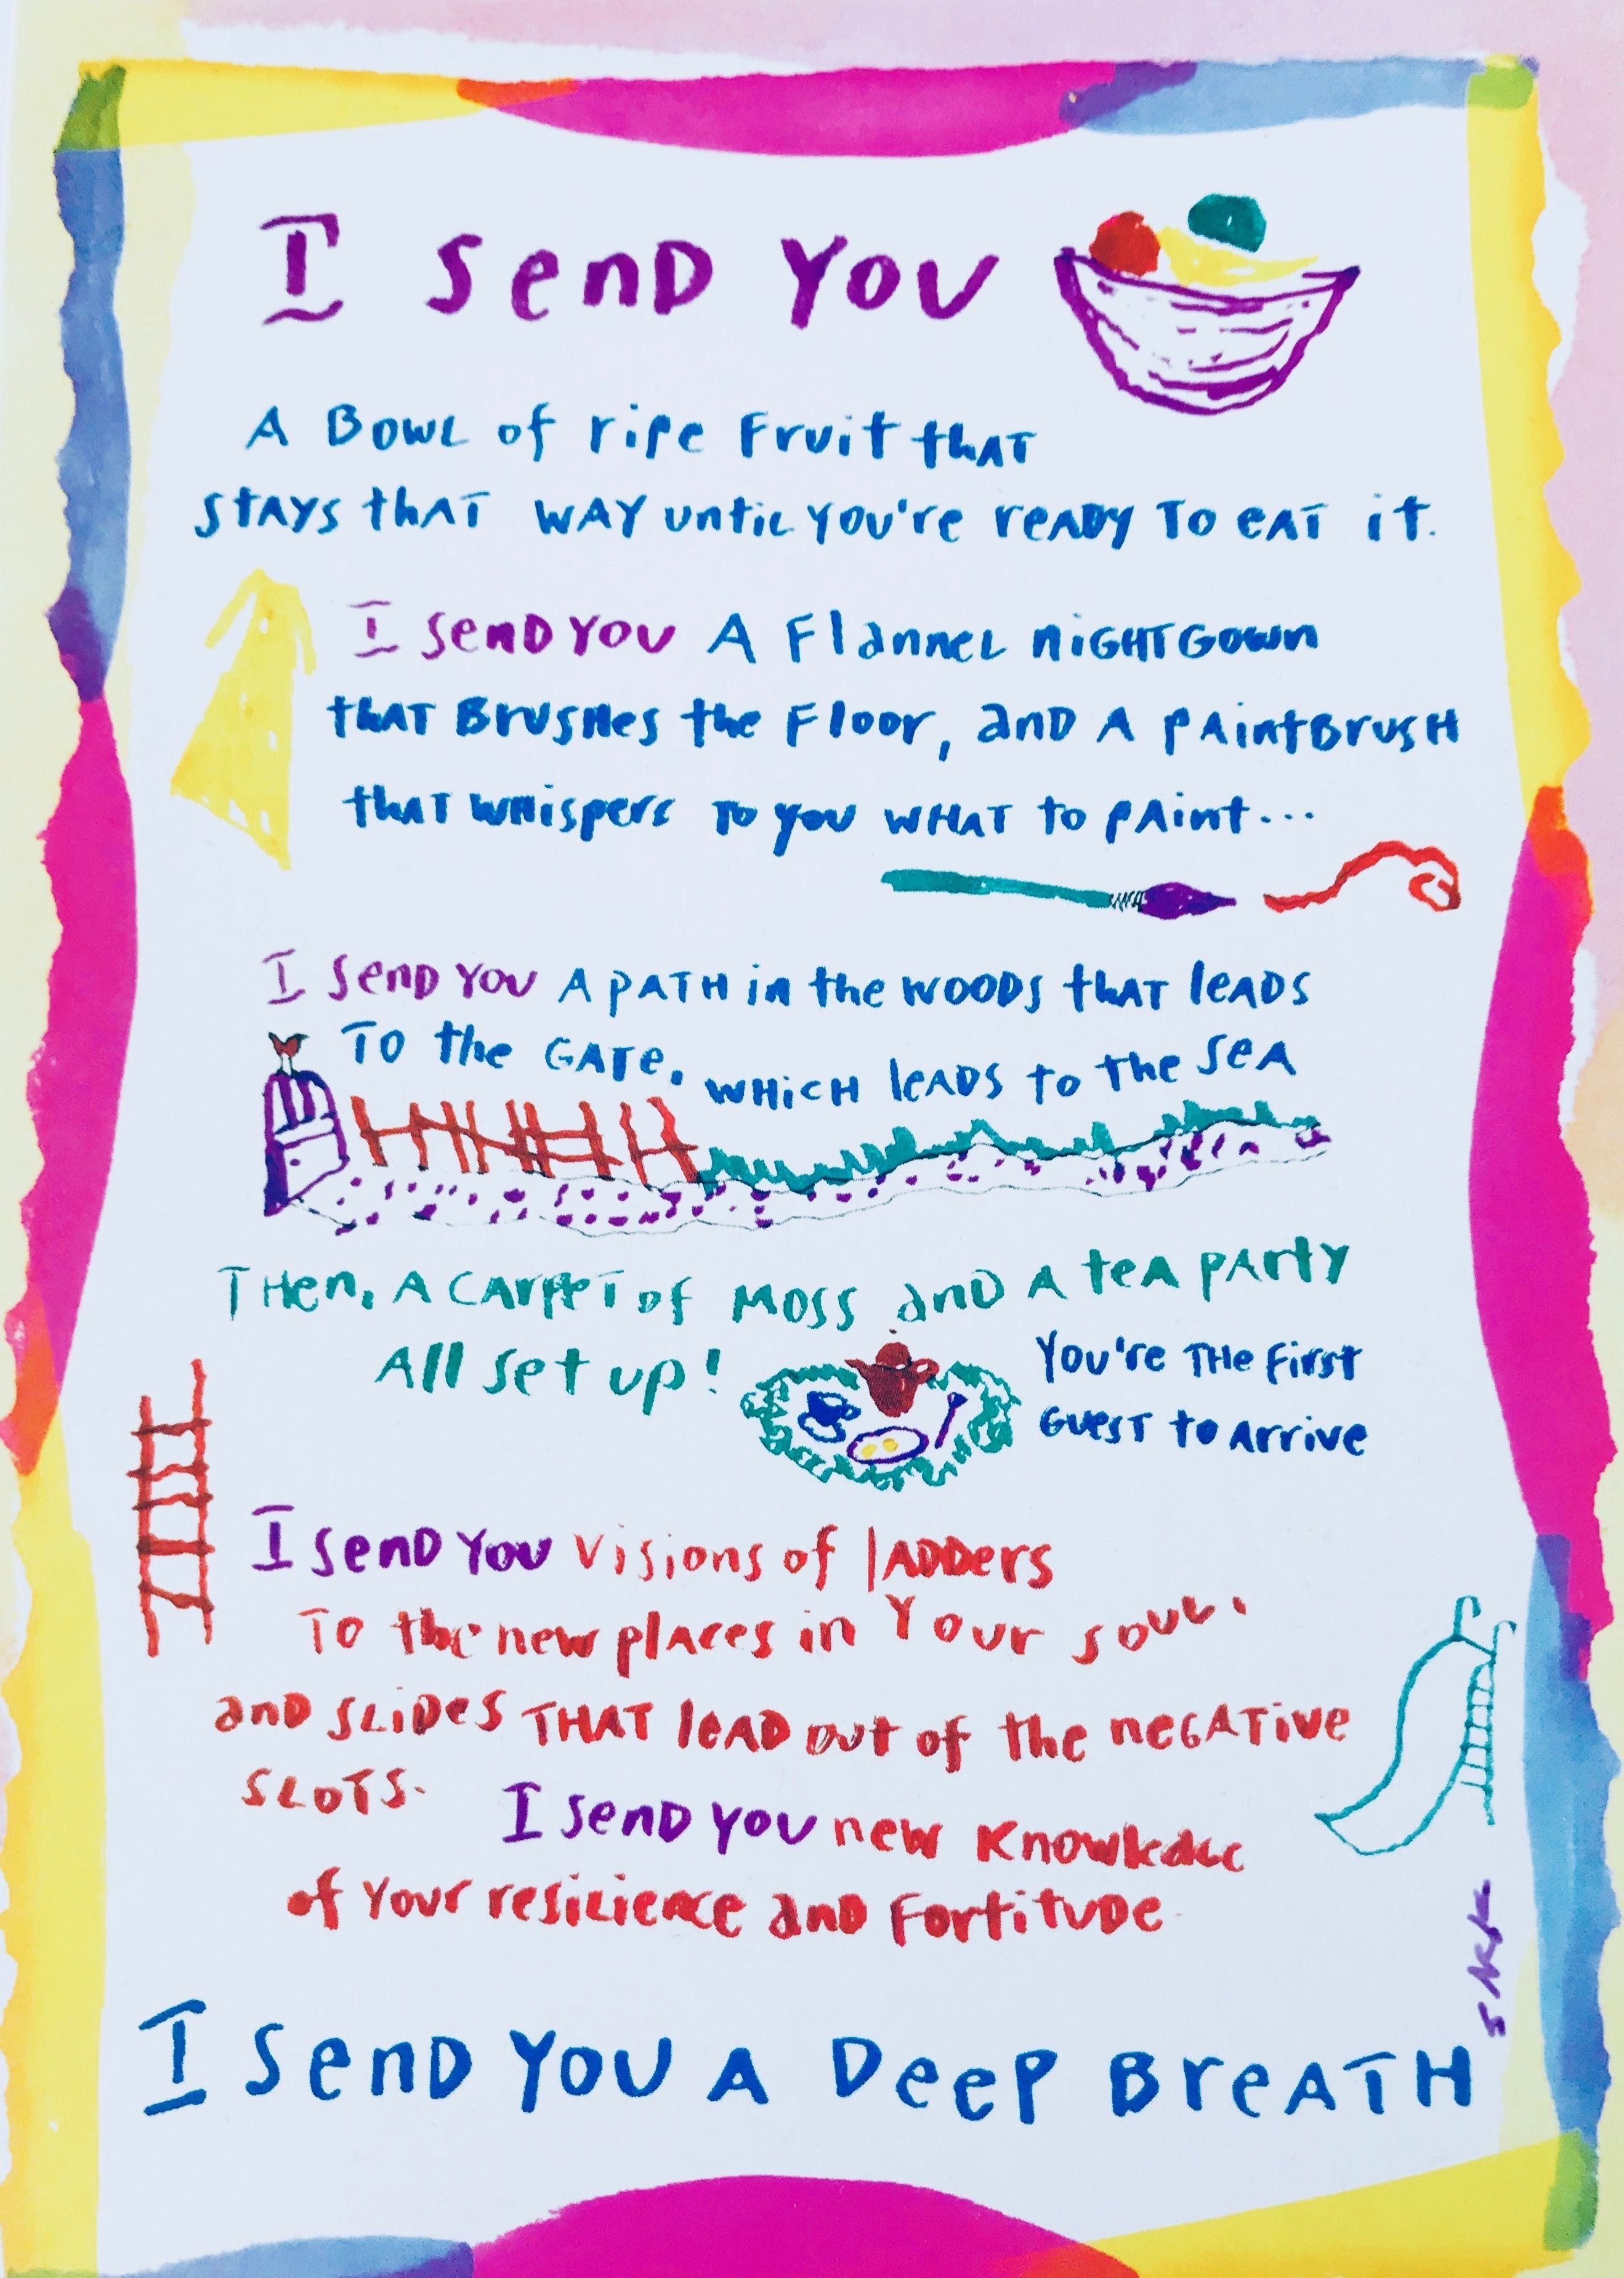 I Send You
A Bowl of ripe Fruit that
stays that way until you're ready to eat it.
I send you A Flannel nightgown
that Brushes the Floor, and A paintBrush
that whispers to you what to paint...
I send you A path in the woods that leads
to the Gate, which leads to the sea
Then, A carpet of Moss and A tea party
All set up!
You're the first
Guest to Arrive
I send you visions of ladders
To the new places in Your soul,
and slides that lead out of the negative
slots. I send you new Knowledge
of Your resilience and Fortitude
I Send You A Deep Breath
SARK